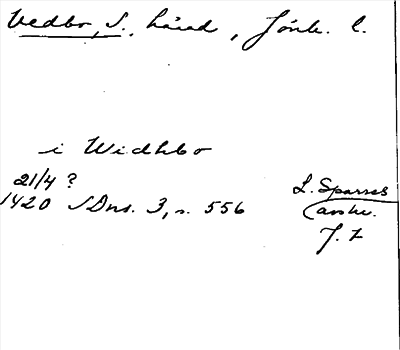 Vedbo, S., härad, Jönk. l.
i Widhbo
21/4 ?
1420 SDns. 3, s. 556
L. Sparres
avskr.